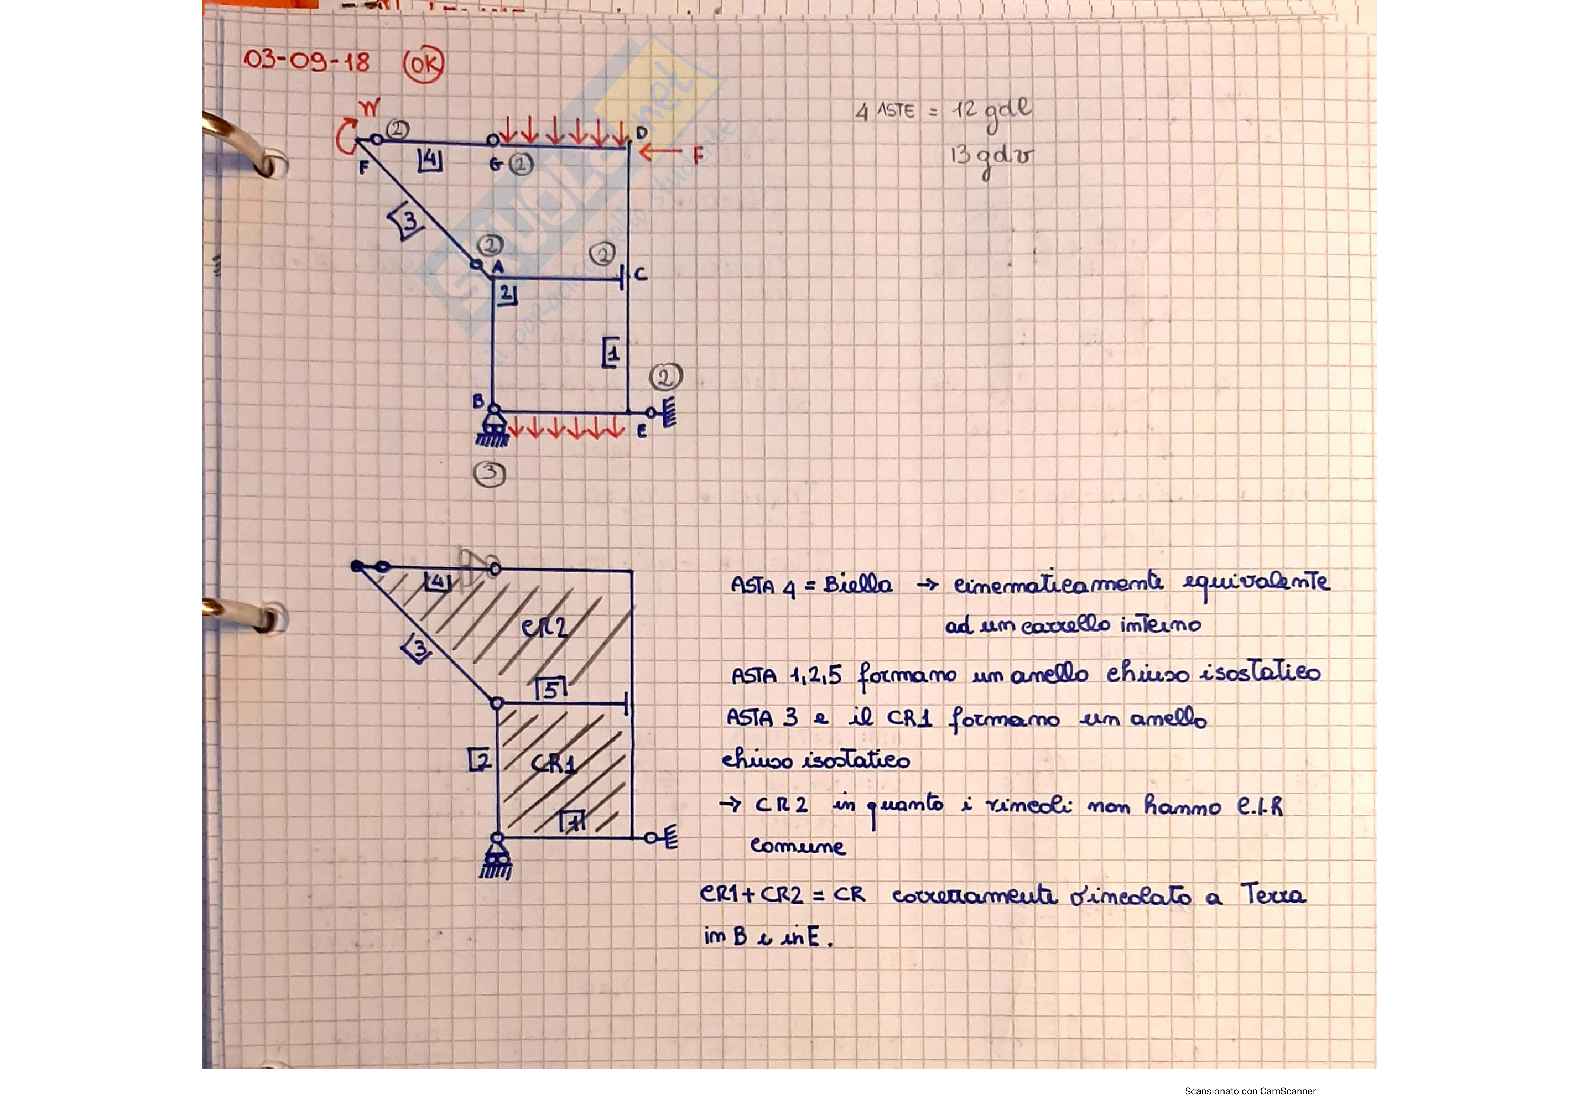 03-09-18 OK
W
2
4 ASTE = 12 gdl
13 gdv
F
4
G
2
D
F
3
2
A
2
C
2
1
2
B
E
3
4
CR2
3
5
2
CR1
1
ASTA 4 = Biella → cinematicamente equivalente
ad un carrello interno
ASTA 1,2,5 formano un anello chiuso isostatico
ASTA 3 e il CR1 formano un anello
chiuso isostatico
→ CR2 in quanto i vincoli non hanno C.I.R
comune
CR1 + CR2 = CR correttamente vincolato a Terra
in B e in E.
Scansionato con CamScanner